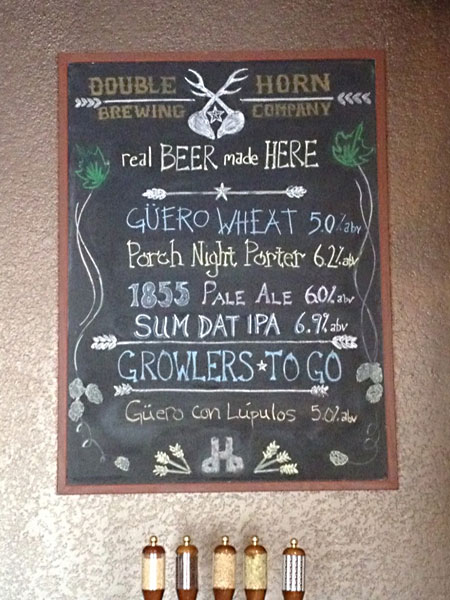 DOUBLE HORN
BREWING COMPANY
real BEER made HERE
GÜERO WHEAT 5.0% abv
Porch Night Porter 6.2% abv
1855 PALE ALE 6.0% abv
SUM DAT IPA 6.9% abv
GROWLERS TO GO
Güero con Lúpulos 5.0% abv